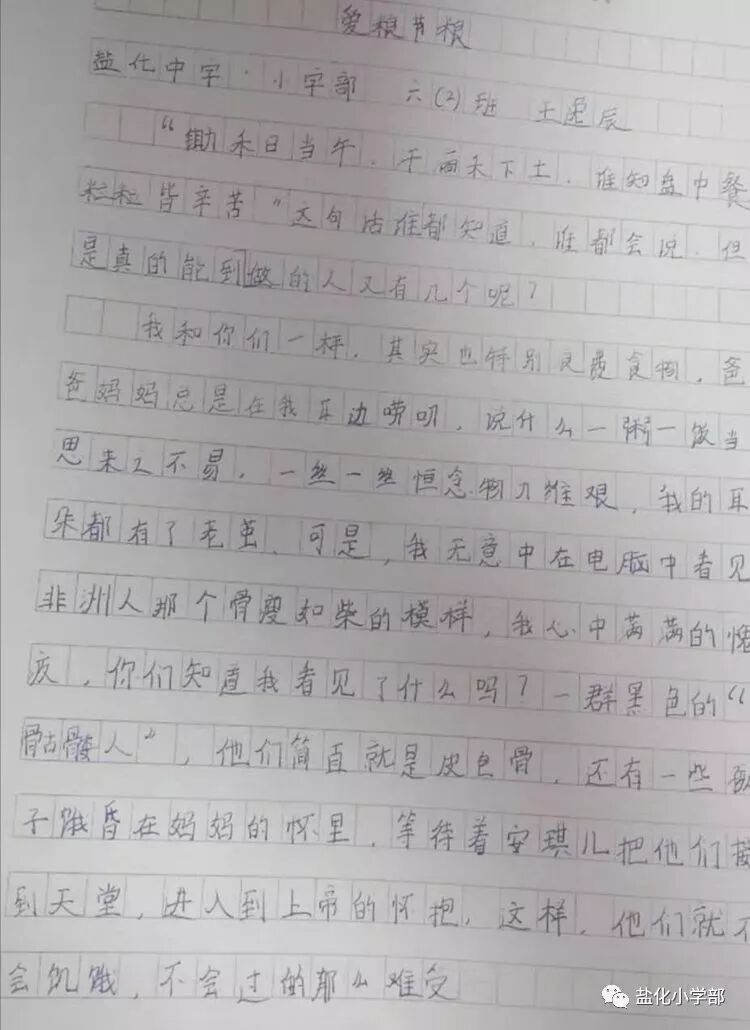 爱粮节粮
盐化中学·小学部 六(2)班 王 辰
“锄禾日当午,汗滴禾下土.谁知盘中餐
粒粒皆辛苦”这句话谁都知道,谁都会说.但
是真的能到做的人又有几个呢?
我和你们一样,其实也特别浪费食物,爸
爸妈妈总是在我耳边唠叨,说什么一粥一饭当
思来之不易,一丝一丝恒念物力维艰,我的耳
朵都有了老茧,可是,我无意中在电脑中看见
非洲人那个骨瘦如柴的模样,我心中满满的愧
疚,你们知道我看见了什么吗?一群黑色的“
骷髅人”,他们简直就是皮包骨,还有一些孩
子饿昏在妈妈的怀里,等待着安琪儿把他们接
到天堂,进入到上帝的怀抱,这样,他们就不
会饥饿,不会过的那么难受
盐化小学部